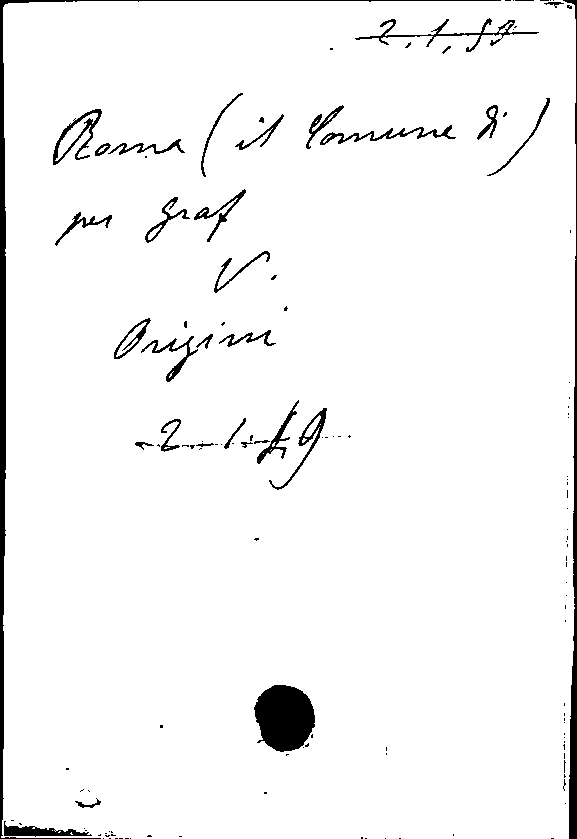 2.1.53
Roma (il Comune di)
per Graf
V.
Origini
2.1.49